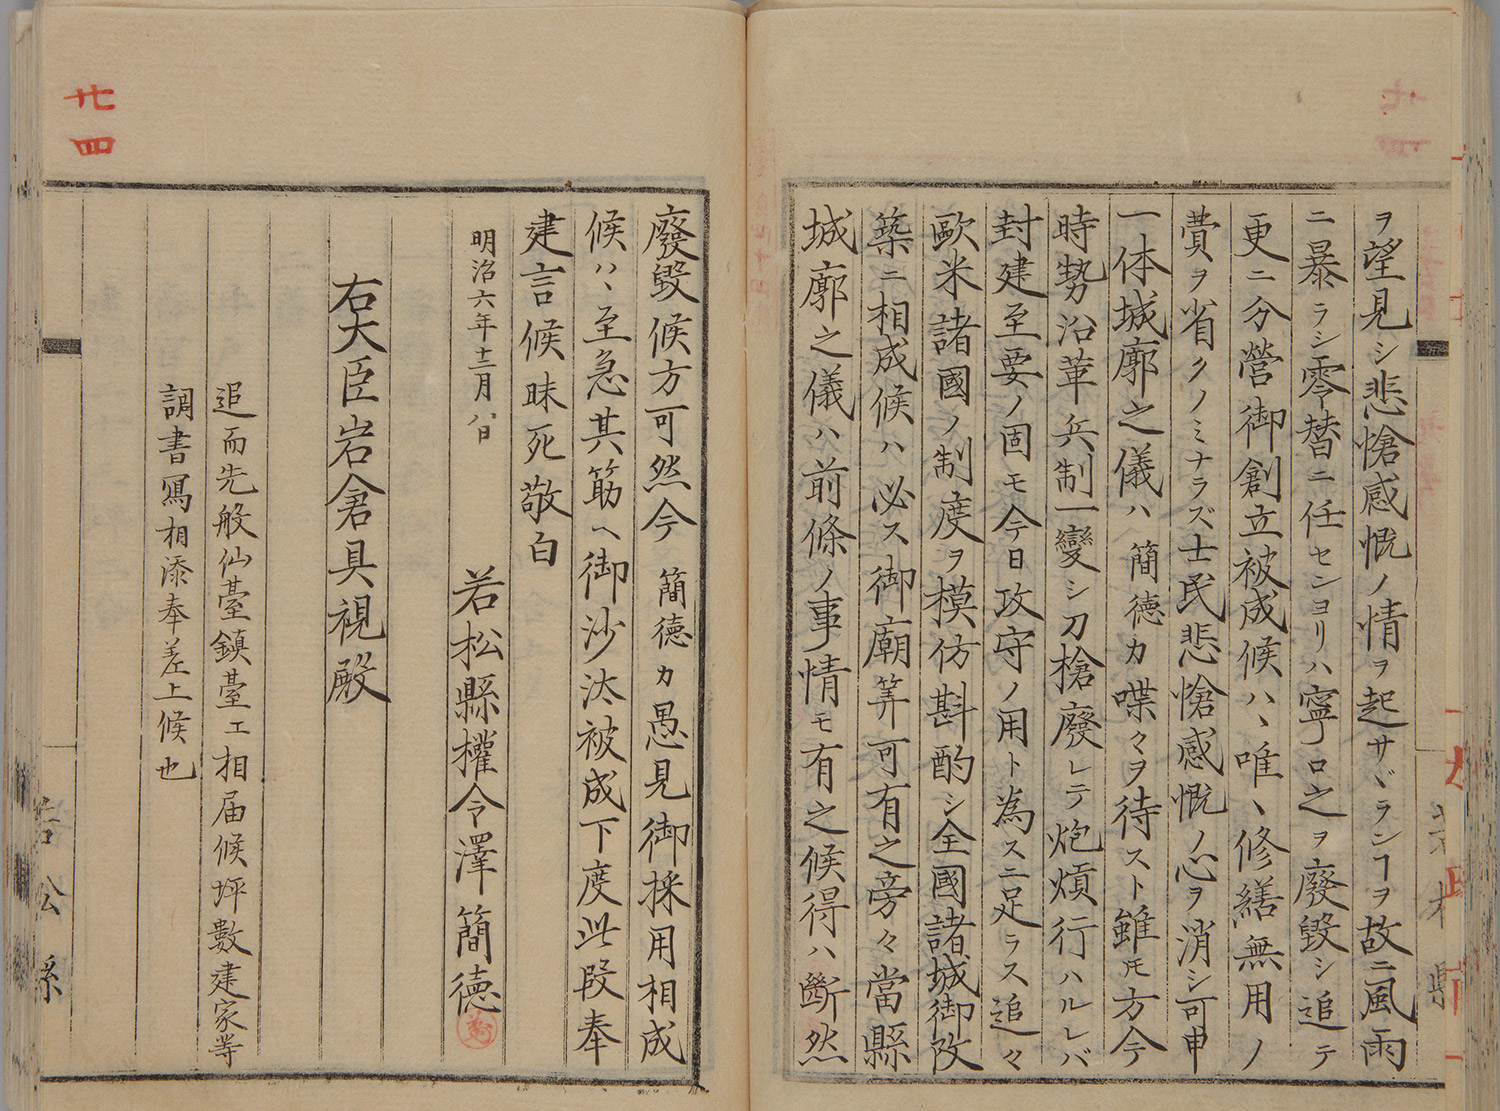 ヲ望見シ悲愴感慨ノ情ヲ起サヾランヿヲ故ニ風雨
ニ暴ラシ零替ニ任センヨリハ寧ロ之ヲ廢毀シ追テ
更ニ分營御創立被成候ハヽ唯、修繕無用ノ
費ヲ省クノミナラズ士民悲愴感慨ノ心ヲ消シ可申
一体城廓之儀ハ簡德カ喋々ヲ待スト雖モ方今
時勢沿革兵制一變シ刀槍廢レテ炮熕行ハルレバ
封建至要ノ固モ今日攻守ノ用ト為スニ足ラス追々
歐米諸國ノ制度ヲ模仿斟酌シ全國諸城御改
築ニ相成候ハ必ス御廟筭可有之旁々當縣
城廓之儀ハ前條ノ事情モ有之候得ハ斷然
廿四
廢毀候方可然今簡德カ愚見御採用相成
候ハヽ至急其筋ヘ御沙汰被成下度此段奉
建言候昧死敬白
明治六年十二月八日
若松縣權令澤簡德
右大臣岩倉具視殿
追而先般仙臺鎮臺エ相届候坪數建家等
調書寫相添奉差上候也
若松縣